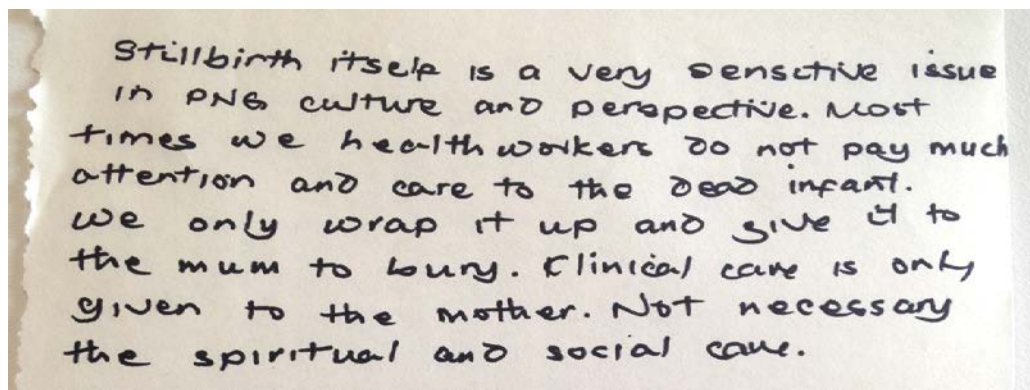 Stillbirth itself is a very sensitive issue
in PNG culture and perspective. Most
times we health workers do not pay much
attention and care to the dead infant.
We only wrap it up and give it to
the mum to bury. Clinical care is only
given to the mother. Not necessary
the spiritual and social care.